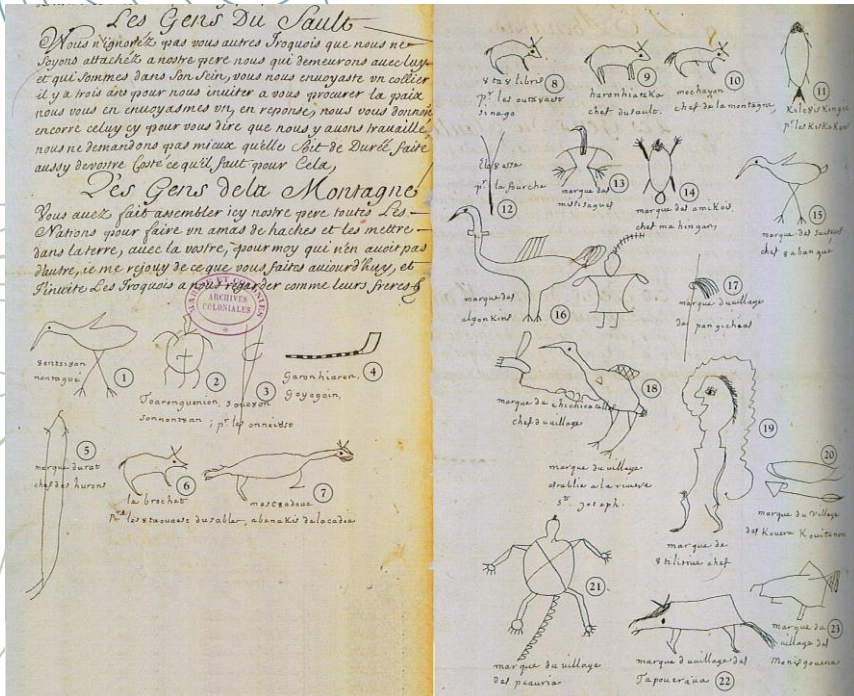 Les Gens Du Sault
Vous n'ignoréz pas vous autres Iroquois que nous ne
soyons attachéz a nostre pere nous qui demeurons avec luy
et qui sommes dans son sein, vous nous envoyaste vn collier
il y a trois ans pour nous inuiter a vous procurer la paix
nous vous en enuoyasmes vn, en reponse, nous vous donnons
encorre celuy cy pour vous dire que nous y auons trauaillé,
nous ne demandons pas mieux qu'elle soit de Durée faite
aussy de vostre Costé ce qu'il faut pour Cela,
Les Gens de la Montagne
Vous auez fait assembler icy nostre pere toutes Les
Nations pour faire vn amas de haches et les mettre
dans la terre, avec la vostre, pour moy qui n'en auoit pas
d'autre, ie me rejouy de ce que vous faites aujourd'huy, et
J'inuite Les Iroquois a nous regarder comme leurs freres
ARCHIVES
COLONIALES
8entsi8an
montagué
1
Toarenguenion,
sonnontoan
2
pr les onneiost
3
Garonhiaron,
Goyogoin,
4
5
marque du rat
chef des hurons
6
le brochet
pr les 8ta8aest du sable,
7
mescadoue
abenakis de lacadie
8
pr les outa8aest
sinago
9
haronhiateka
chef du sault.
10
mechayon
chef de la montagne,
11
pr les KisKaKons
12
pr la fourche
13
marque des
missisagues
14
marque des amiKois
chef mahingan,
15
marque des sauteurs
chef 8abangué
marque des
algonKins
16
17
marque d uillage
18
marque de chichicatalle
chef d uillage
marque du village
etablie a la riuiere
St. Joseph.
19
marque de
8tilirine chef
20
marque du village
des Kouera Kouitanon
21
marque du village
des peauria
marque d uillage des
Tapouer8ua 22
marque du 23
uillage des
Monisgouena